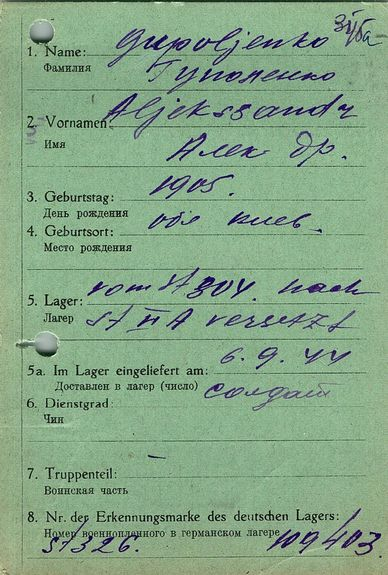 1. Name: Gupoljenko
Фамилия Гупоненко
2. Vornamen: Aljekssandr
Имя Алек др.
3. Geburtstag: 1905.
День рождения
4. Geburtsort: обл киев.
Место рождения
5. Lager: vom St 304. nach
Лагер St II A versetzt
5a. Im Lager eingeliefert am: 6.9.44
Доставлен в лагер (число) солдат
6. Dienstgrad:
Чин
7. Truppenteil: –
Воинская часть
8. Nr. der Erkennungsmarke des deutschen Lagers:
Номер военнопленного в германском лагере
St 326. 109/403